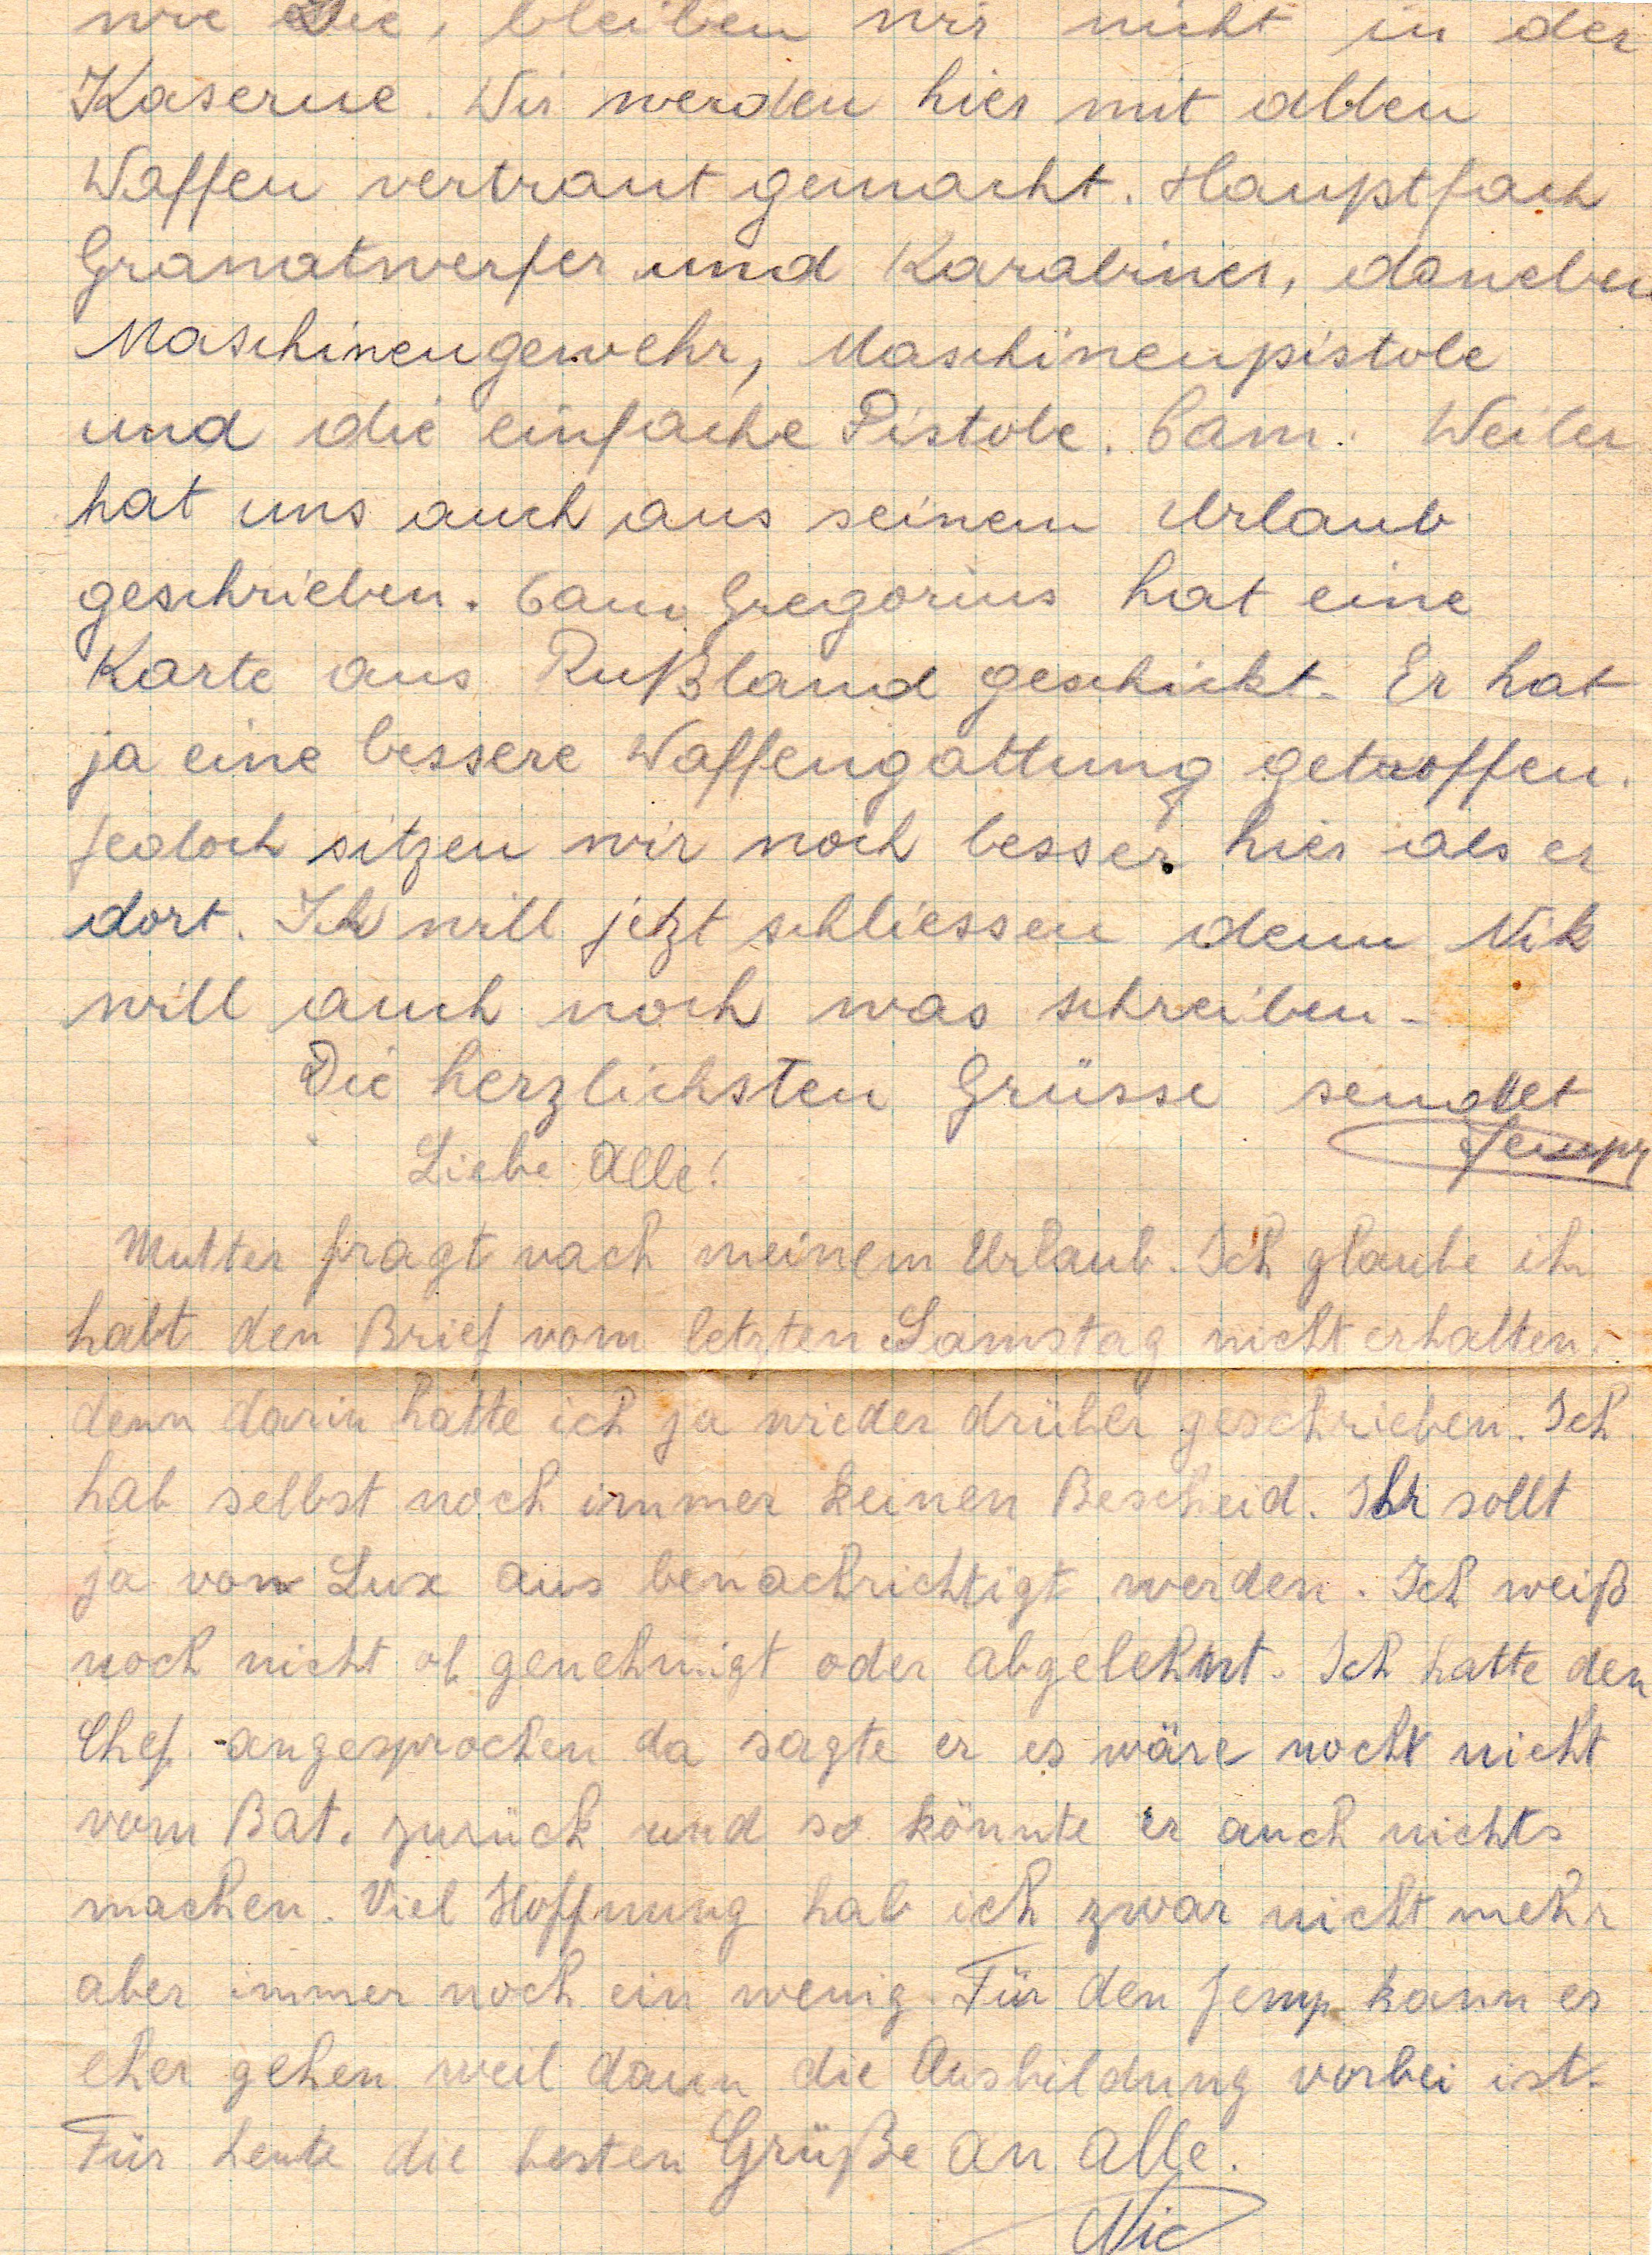 wie Die, bleiben wir nicht in der
Kaserne. Wir werden hier mit allen
Waffen vertraut gemacht. Hauptfach
Granatwerfer und Karabiner, daneben
Maschinengewehr, Maschinenpistole
und die einfache Pistole. Cam. Weiler
hat uns auch aus seinem Urlaub
geschrieben. Cam. Gregorius hat eine
Karte aus Rußland geschickt. Er hat
ja eine bessere Waffengattung getroffen.
Jedoch sitzen wir noch besser hier als er
dort. Ich will jetzt schliessen denn Nik
will auch noch was schreiben.
Die herzlichsten Grüsse sendet
Jempy
Liebe Alle!
Mutter fragt nach meinem Urlaub. Ich glaube ihr
habt den Brief vom letzten Samstag nicht erhalten,
denn darin hatte ich ja wieder drüber geschrieben. Ich
hab selbst noch immer keinen Bescheid. Ihr sollt
ja von Lux aus benachrichtigt werden. Ich weiß
noch nicht ob genehmigt oder abgelehnt. Ich hatte den
Chef angesprochen da sagte er es wäre noch nicht
vom Bat. zurück und so könnte er auch nichts
machen. Viel Hoffnung hab ich zwar nicht mehr
aber immer noch ein wenig. Für den Jemp kann es
eher gehen weil dann die Ausbildung vorbei ist.
Für heute die besten Grüße an alle.
Nic